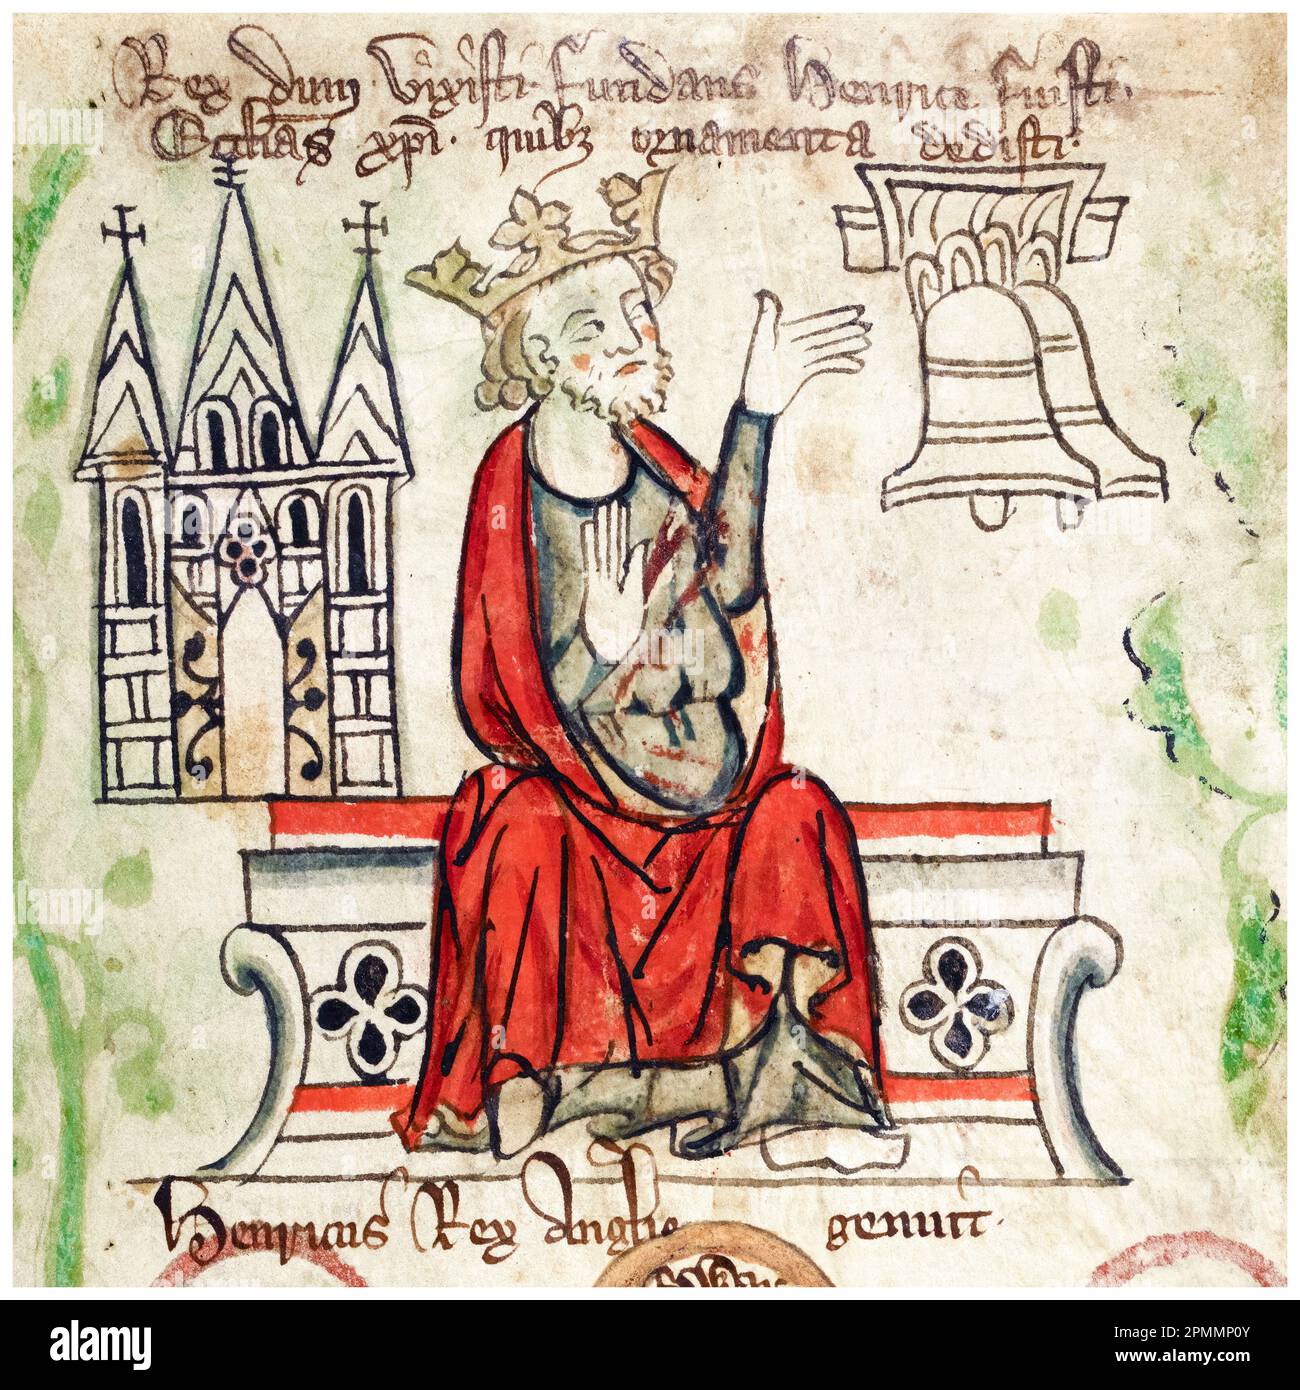 Rex dum vixisti fundans Henrice fuisti.
Eccl̄ias xp̄i. quibꝫ ornamenta dedisti.
Henricus Rex Anglie genuit.
alamy
Image ID: 2PMMP0Y
www.alamy.com